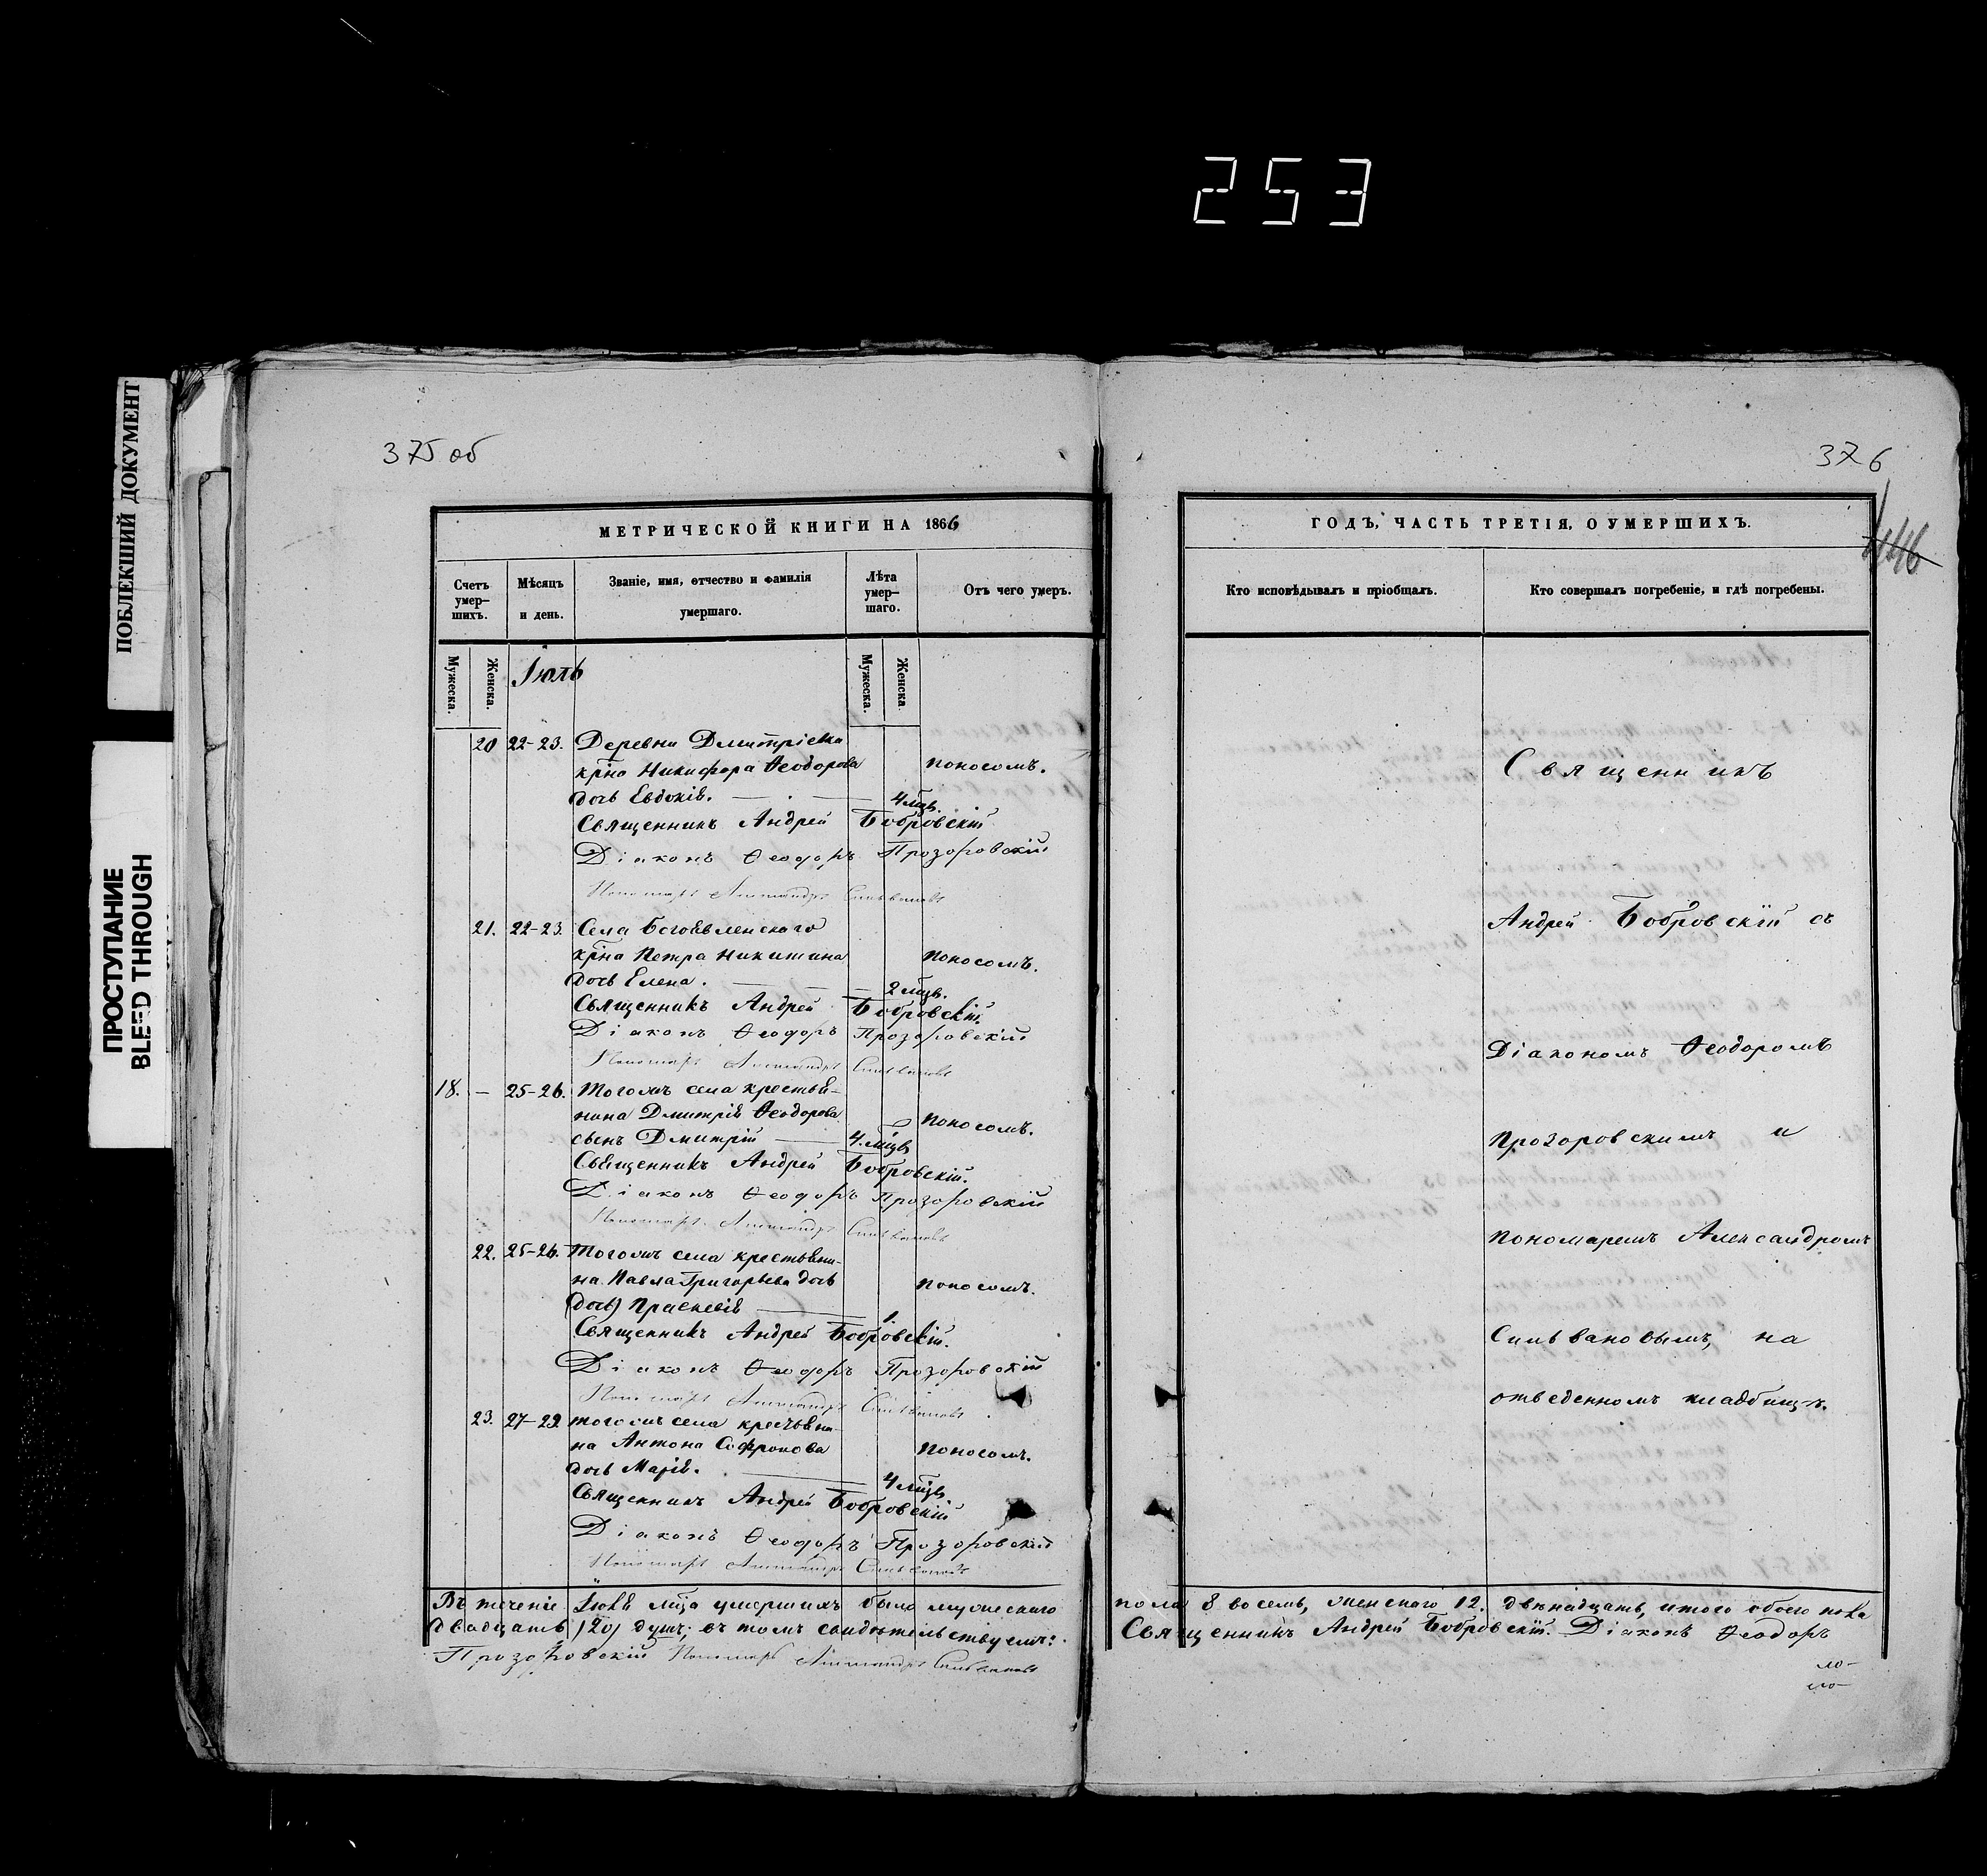 253
ПОБЛЕКШИЙ ДОКУМЕНТ
ПРОСТУПАНИЕ
BLEED THROUGH
375 об
МЕТРИЧЕСКОЙ КНИГИ НА 1866
Счетъ умер-шихъ.
Мѣсяцъ и день.
Званіе, имя, отчество и фамилія умершаго.
Лѣта умер-шаго.
Отъ чего умеръ.
Мужеска. Женска. Іюль Мужеска. Женска
20 22-23. Деревни Дмитріевки
крⷭ҇на Никифора Ѳеодорова поносомъ.
дочь Евдокія. 4 мⷭ҇цв.
Священникъ Андрей Бобровскій
Діаконъ Ѳеодоръ Прозоровскій
Пономарь Александръ Сильвановъ
21. 22-23. Села Богоявленскаго
крⷭ҇на Петра Никитина поносомъ.
дочь Елена. 2 мⷭ҇цв.
Священникъ Андрей Бобровскій.
Діаконъ Ѳеодоръ Прозоровскій
Пономарь Александръ Сильвановъ
18. – 25-26. Тогожъ села крестья-
нина Дмитрія Ѳеодорова поносомъ.
сынъ Дмитрій 4. мⷭ҇цв
Священникъ Андрей Бобровскій.
Діаконъ Ѳеодоръ Прозоровскій
Пономарь Александръ Сильвановъ
22. 25-26. Тогожъ села крестьяни-
на Павла Григорьева дочь поносомъ.
(дочь) Праскевія 1.
Священникъ Андрей Бобровскій.
Діаконъ Ѳеодоръ Прозоровскій
Пономарь Александръ Сильвановъ
23. 27-29 тогожъ села крестьяни-
на Антона Софронова поносомъ.
дочь Марія. 4 мⷭ҇цв
Священникъ Андрей Бобровскій
Діаконъ Ѳеодоръ Прозоровскій
Пономарь Александръ Сильвановъ
Въ теченіе Іюля мⷭ҇ца умершихъ было мужескаго
двадцать (20) душъ; въ томъ свидѣтельствуемъ:
Прозоровскій Пономарь Александръ Сильвановъ
376
ГОДЪ, ЧАСТЬ ТРЕТІЯ, О УМЕРШИХЪ.
Кто исповѣдывалъ и пріобщалъ.
Кто совершалъ погребеніе, и гдѣ погребены.
Священникъ
Андрей Бобровскій съ
Діакономъ Ѳеодоромъ
Прозоровскимъ и
пономаремъ Александромъ
Сильвановымъ, на
отведенномъ кладбищѣ.
пола 8 восемь, женскаго 12. двѣнадцать, итого обоего пола
Священникъ Андрей Бобровскій. Діаконъ Ѳеодоръ